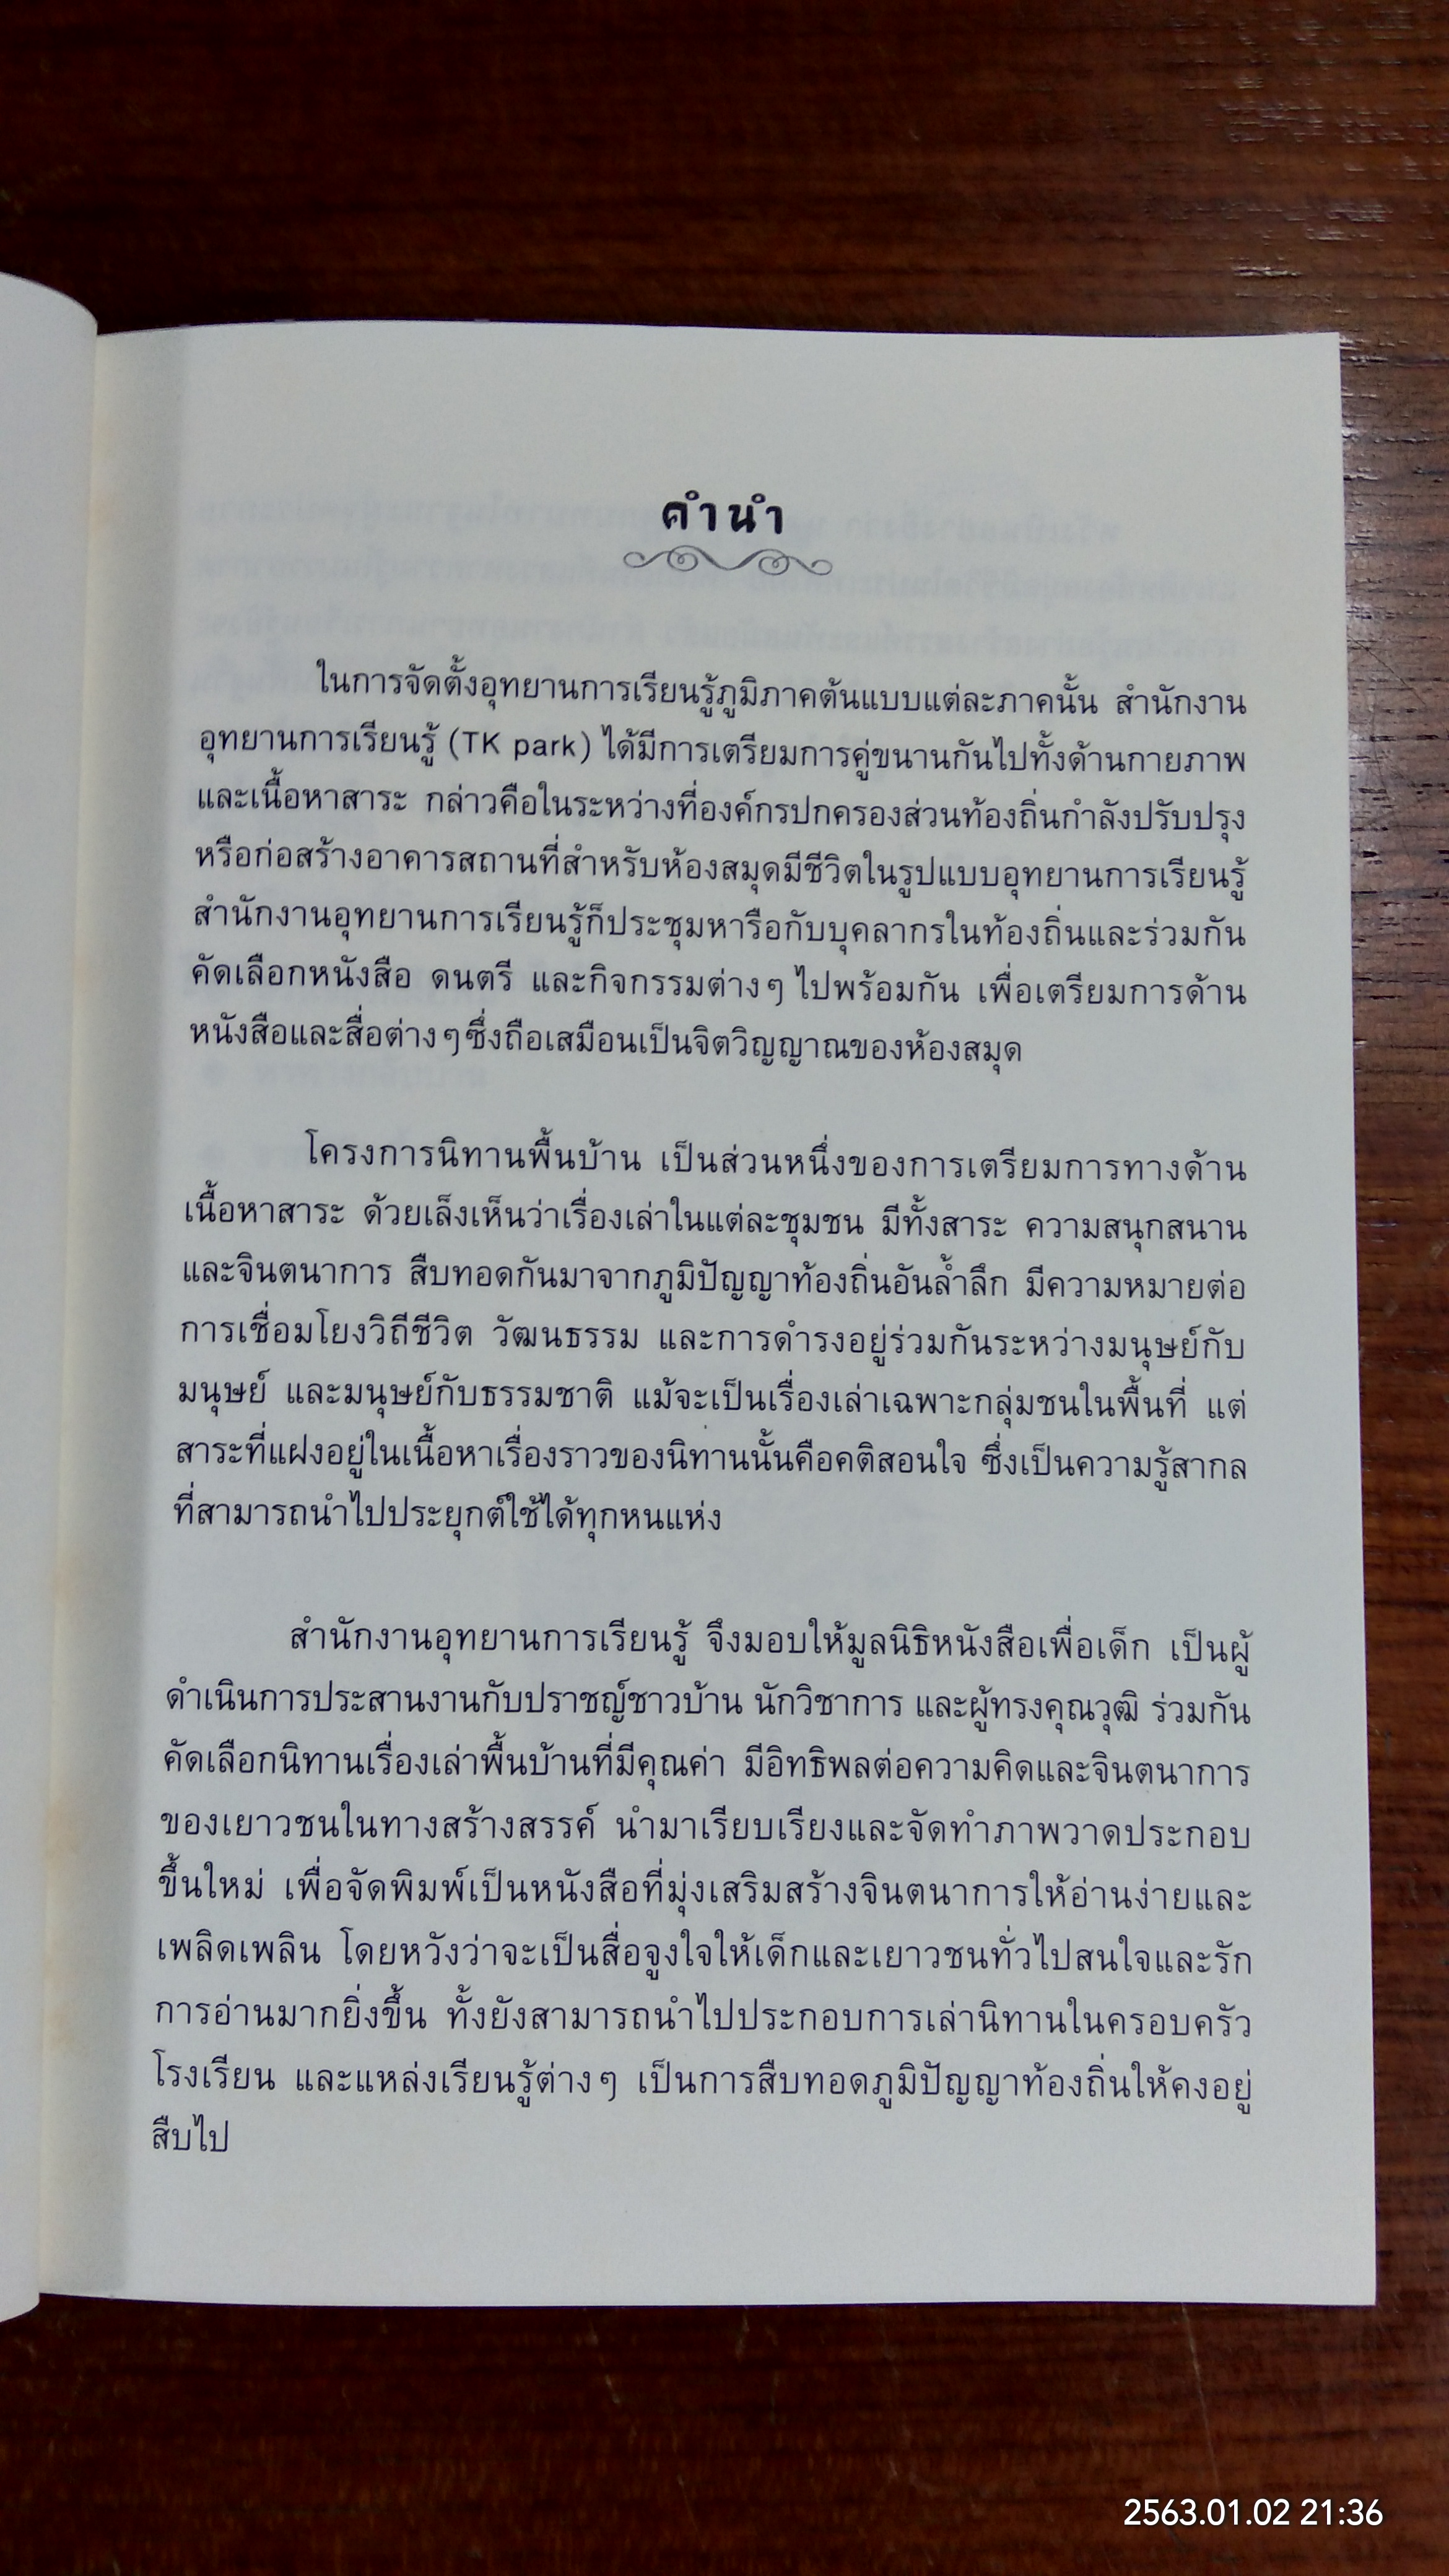 คำนำ
ในการจัดตั้งอุทยานการเรียนรู้ภูมิภาคต้นแบบแต่ละภาคนั้น สำนักงาน
อุทยานการเรียนรู้ (TK park) ได้มีการเตรียมการคู่ขนานกันไปทั้งด้านกายภาพ
และเนื้อหาสาระ กล่าวคือในระหว่างที่องค์กรปกครองส่วนท้องถิ่นกำลังปรับปรุง
หรือก่อสร้างอาคารสถานที่สำหรับห้องสมุดมีชีวิตในรูปแบบอุทยานการเรียนรู้
สำนักงานอุทยานการเรียนรู้ก็ประชุมหารือกับบุคลากรในท้องถิ่นและร่วมกัน
คัดเลือกหนังสือ ดนตรี และกิจกรรมต่างๆ ไปพร้อมกัน เพื่อเตรียมการด้าน
หนังสือและสื่อต่างๆซึ่งถือเสมือนเป็นจิตวิญญาณของห้องสมุด
โครงการนิทานพื้นบ้าน เป็นส่วนหนึ่งของการเตรียมการทางด้าน
เนื้อหาสาระ ด้วยเล็งเห็นว่าเรื่องเล่าในแต่ละชุมชน มีทั้งสาระ ความสนุกสนาน
และจินตนาการ สืบทอดกันมาจากภูมิปัญญาท้องถิ่นอันล้ำลึก มีความหมายต่อ
การเชื่อมโยงวิถีชีวิต วัฒนธรรม และการดำรงอยู่ร่วมกันระหว่างมนุษย์กับ
มนุษย์ และมนุษย์กับธรรมชาติ แม้จะเป็นเรื่องเล่าเฉพาะกลุ่มชนในพื้นที่ แต่
สาระที่แฝงอยู่ในเนื้อหาเรื่องราวของนิทานนั้นคือคติสอนใจ ซึ่งเป็นความรู้สากล
ที่สามารถนำไปประยุกต์ใช้ได้ทุกหนแห่ง
สำนักงานอุทยานการเรียนรู้ จึงมอบให้มูลนิธิหนังสือเพื่อเด็ก เป็นผู้
ดำเนินการประสานงานกับปราชญ์ชาวบ้าน นักวิชาการ และผู้ทรงคุณวุฒิ ร่วมกัน
คัดเลือกนิทานเรื่องเล่าพื้นบ้านที่มีคุณค่า มีอิทธิพลต่อความคิดและจินตนาการ
ของเยาวชนในทางสร้างสรรค์ นำมาเรียบเรียงและจัดทำภาพวาดประกอบ
ขึ้นใหม่ เพื่อจัดพิมพ์เป็นหนังสือที่มุ่งเสริมสร้างจินตนาการให้อ่านง่ายและ
เพลิดเพลิน โดยหวังว่าจะเป็นสื่อจูงใจให้เด็กและเยาวชนทั่วไปสนใจและรัก
การอ่านมากยิ่งขึ้น ทั้งยังสามารถนำไปประกอบการเล่านิทานในครอบครัว
โรงเรียน และแหล่งเรียนรู้ต่างๆ เป็นการสืบทอดภูมิปัญญาท้องถิ่นให้คงอยู่
สืบไป
2563.01.02 21:36